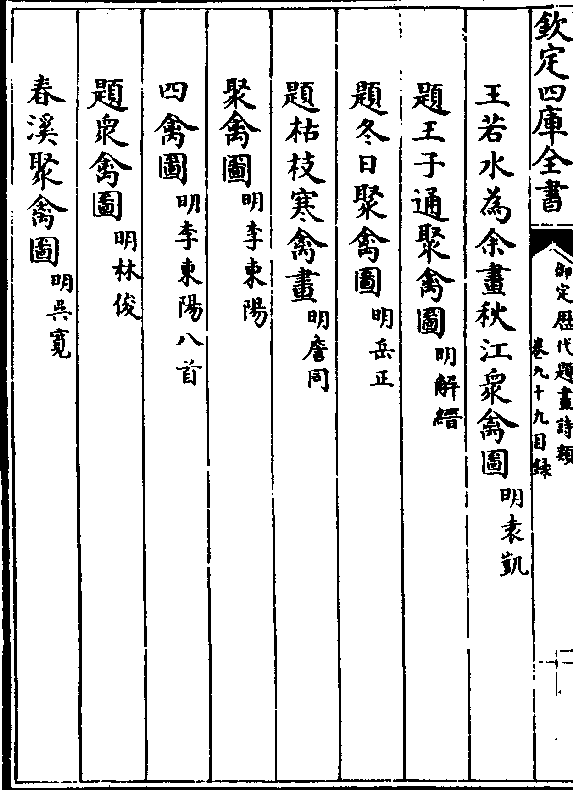 欽定四庫全書
御定歷代題畫詩類
卷九十九目錄
二
王若水為余畫秋江衆禽圖明袁凱
題王子通聚禽圖明解縉
題冬日聚禽圖明岳正
題枯枝寒禽畫明詹同
聚禽圖明李東陽
四禽圖明李東陽八首
題衆禽圖明林俊
春溪聚禽圖明吳寬